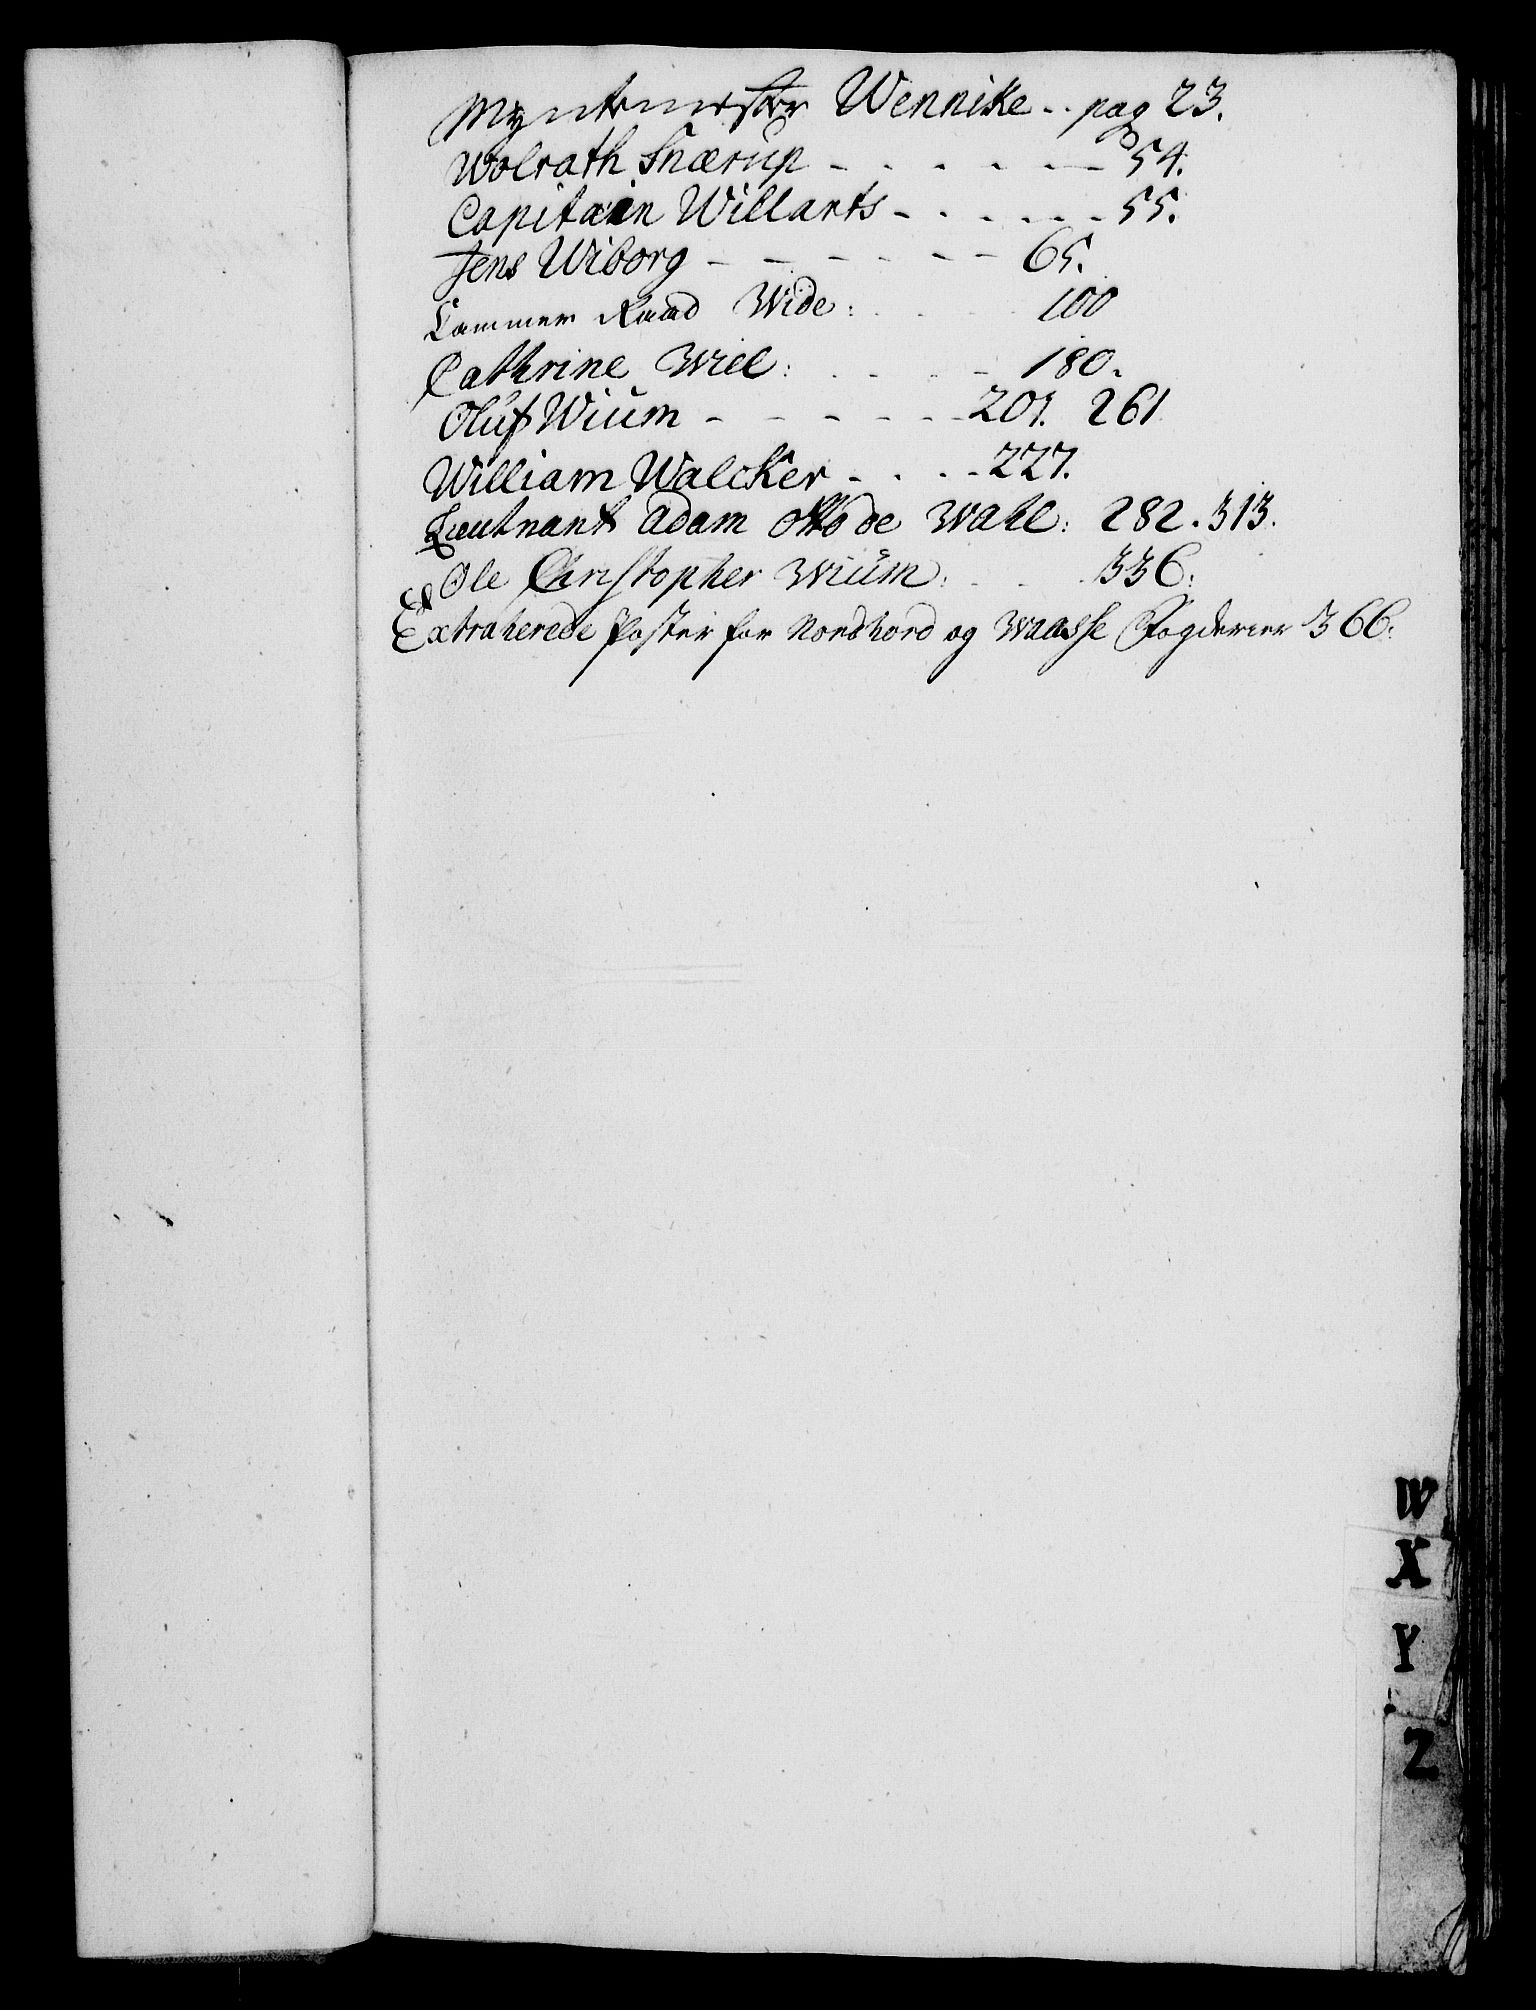 Myntmester Wennike - - pag 23.
Wolrath Snærup - - - - - - 54.
Capitain Willarts - - - - - - 55.
Jens Wiborg - - - - - - 65.
Cammer Raad Wide: - - - 100
Cathrine Wiel: - - - - 180.
Oluf Wium - - - - - - 201. 261
William Walcker - - - - 227.
Lieutnant Adam Otto de Wahl: 282. 313.
Ole Christopher Wium: - - - 336:
Extraherede Poster for Nordhord og Waasse Fogderier 366:
W
X
Y
Z